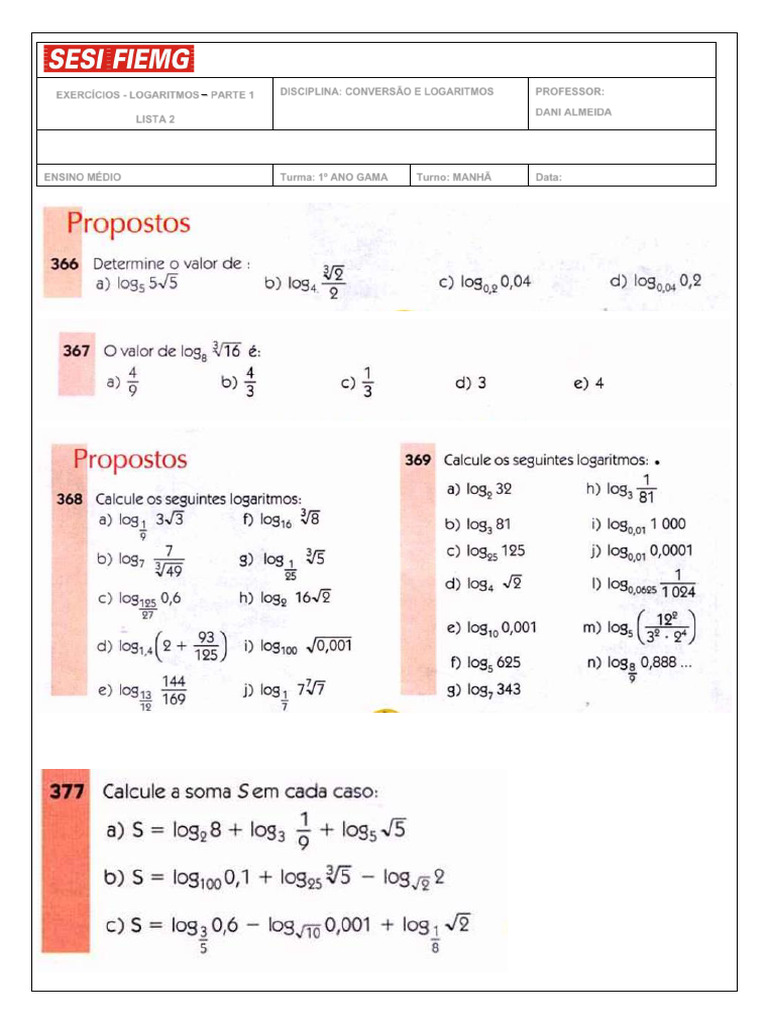 SESI FIEMG
EXERCÍCIOS - LOGARITMOS – PARTE 1
LISTA 2
DISCIPLINA: CONVERSÃO E LOGARITMOS
PROFESSOR:
DANI ALMEIDA
ENSINO MÉDIO
Turma: 1º ANO GAMA
Turno: MANHÃ
Data:
Propostos
366 Determine o valor de :
a) log₅ 5√5 b) log₄ ∛2/2 c) log₀,₂ 0,04 d) log₀,₀₄ 0,2
367 O valor de log₈ ∛16 é:
a) 4/9 b) 4/3 c) 1/3 d) 3 e) 4
Propostos
368 Calcule os seguintes logaritmos:
a) log 1/9 3√3 f) log₁₆ ∛8
b) log₇ 7/∛49 g) log 1/25 ∛5
c) log 125/27 0,6 h) log₂ 16√2
d) log₁,₄ (2 + 93/125) i) log₁₀₀ √0,001
e) log 13/12 144/169 j) log 1/7 7⁷√7
369 Calcule os seguintes logaritmos:
a) log₂ 32 h) log₃ 1/81
b) log₃ 81 i) log₀,₀₁ 1 000
c) log₂₅ 125 j) log₀,₀₁ 0,0001
d) log₄ √2 l) log₀,₀₆₂₅ 1/1 024
e) log₁₀ 0,001 m) log₅ (12²/3² · 2⁴)
f) log₅ 625 n) log 8/9 0,888 ...
g) log₇ 343
377 Calcule a soma S em cada caso:
a) S = log₂ 8 + log₃ 1/9 + log₅ √5
b) S = log₁₀₀ 0,1 + log₂₅ ∛5 − log√2 2
c) S = log 3/5 0,6 − log√10 0,001 + log 1/8 √2